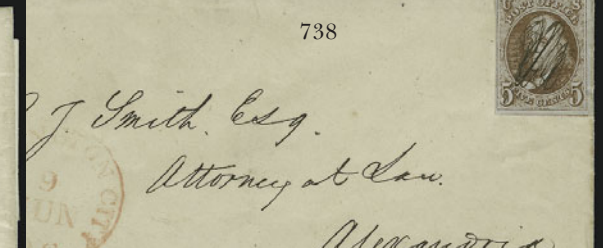 738
POST OFFICE
5 FIVE CENTS 5
J. Smith. Esq.
Attorney at Law.
Alexandria
CITY
9
JUN